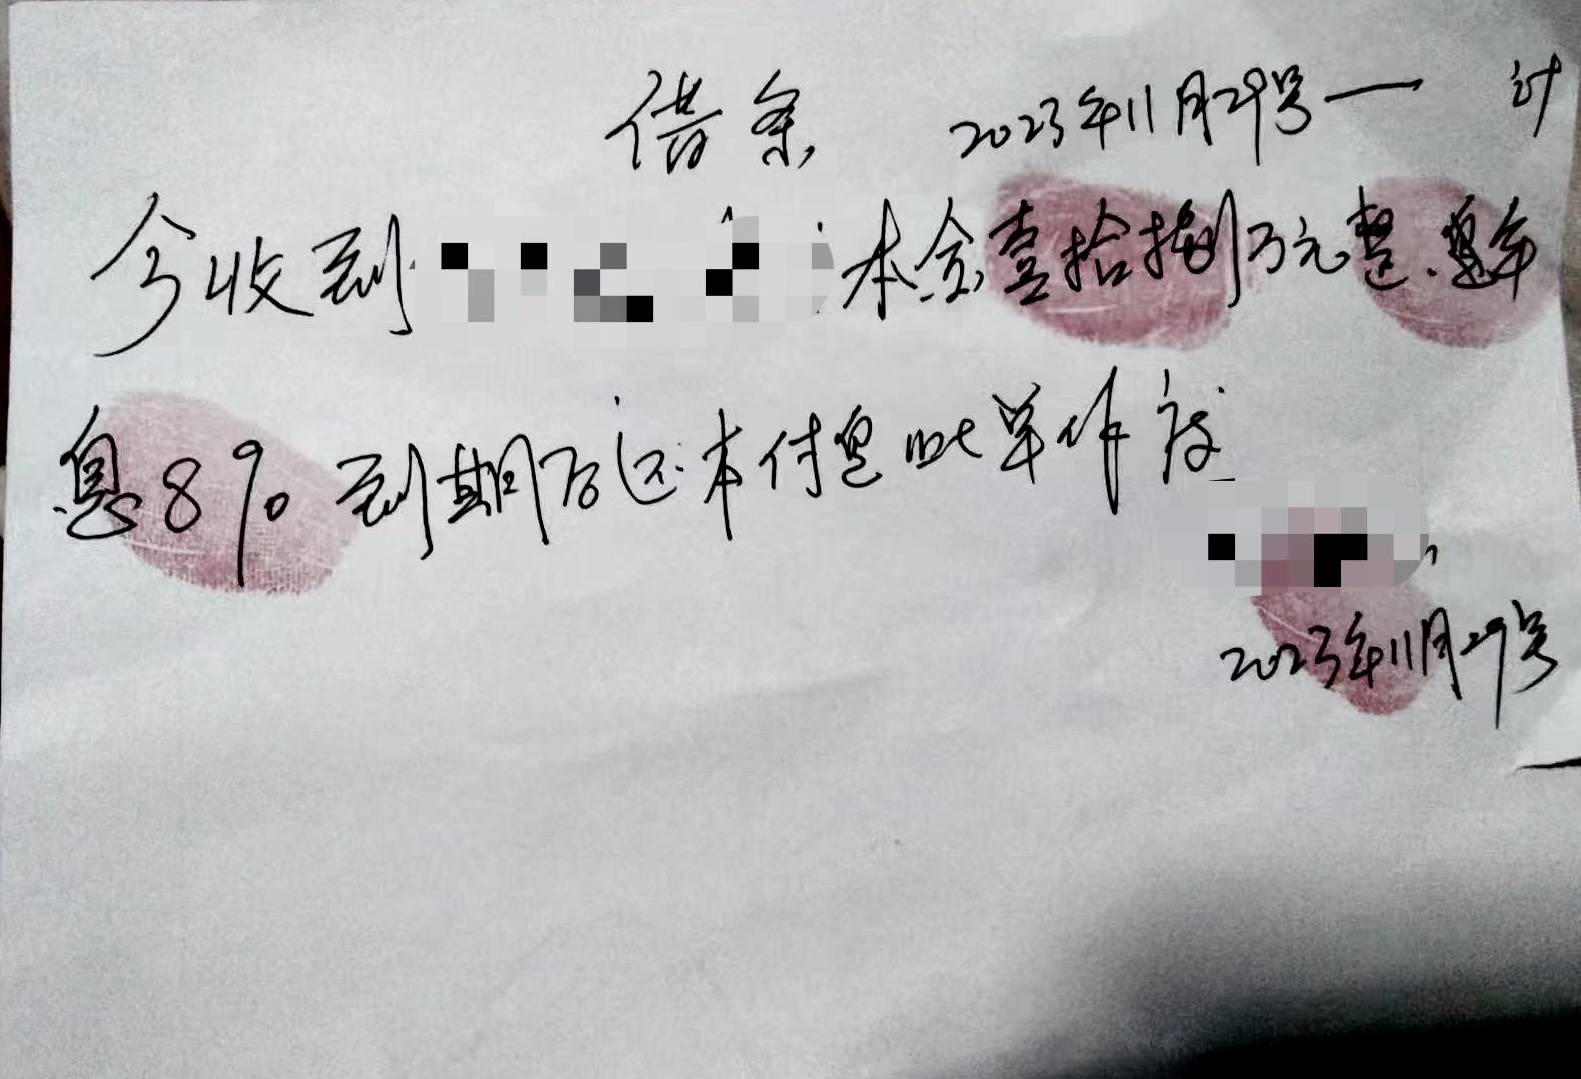 借条 2023年11月29号一 计
今收到 本金壹拾捌万元整.息年
息8% 到期后还本付息此单作废
2023年11月29号